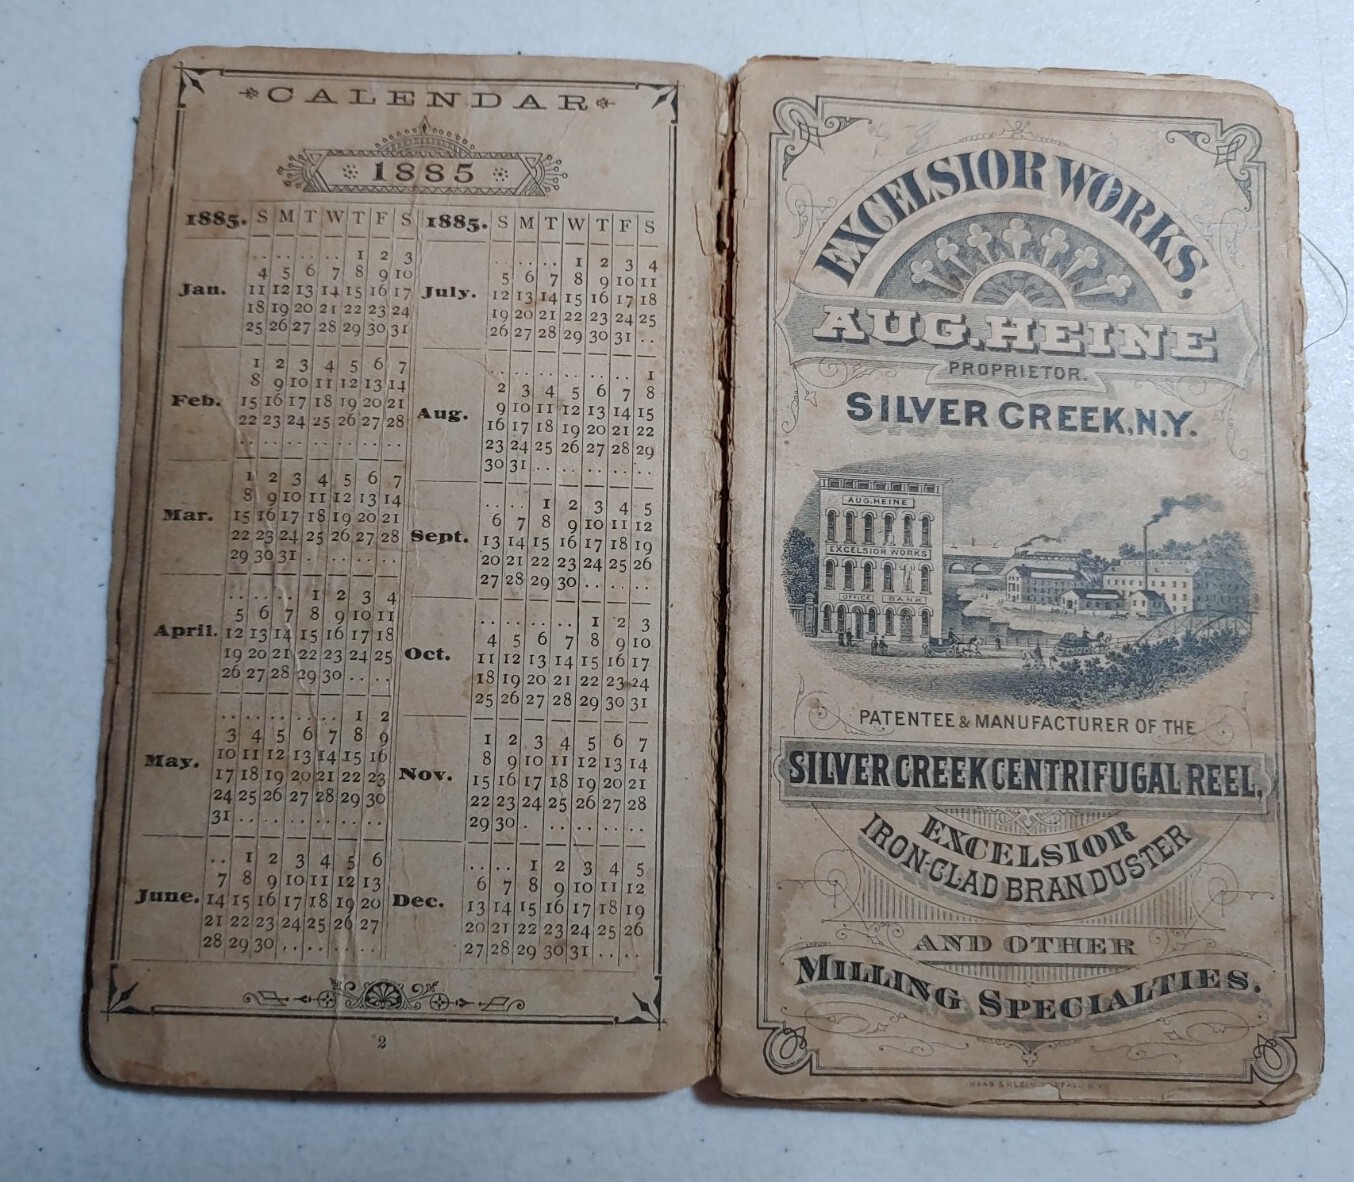 CALENDAR
1885
1885. S M T W T F S
Jan.
. . . . . . . . 1 2 3
4 5 6 7 8 9 10
11 12 13 14 15 16 17
18 19 20 21 22 23 24
25 26 27 28 29 30 31
Feb.
1 2 3 4 5 6 7
8 9 10 11 12 13 14
15 16 17 18 19 20 21
22 23 24 25 26 27 28
Mar.
1 2 3 4 5 6 7
8 9 10 11 12 13 14
15 16 17 18 19 20 21
22 23 24 25 26 27 28
29 30 31
April.
1 2 3 4
5 6 7 8 9 10 11
12 13 14 15 16 17 18
19 20 21 22 23 24 25
26 27 28 29 30
May.
1 2
3 4 5 6 7 8 9
10 11 12 13 14 15 16
17 18 19 20 21 22 23
24 25 26 27 28 29 30
31
June.
1 2 3 4 5 6
7 8 9 10 11 12 13
14 15 16 17 18 19 20
21 22 23 24 25 26 27
28 29 30
1885. S M T W T F S
July.
1 2 3 4
5 6 7 8 9 10 11
12 13 14 15 16 17 18
19 20 21 22 23 24 25
26 27 28 29 30 31
Aug.
1
2 3 4 5 6 7 8
9 10 11 12 13 14 15
16 17 18 19 20 21 22
23 24 25 26 27 28 29
30 31
Sept.
1 2 3 4 5
6 7 8 9 10 11 12
13 14 15 16 17 18 19
20 21 22 23 24 25 26
27 28 29 30
Oct.
1 2 3
4 5 6 7 8 9 10
11 12 13 14 15 16 17
18 19 20 21 22 23 24
25 26 27 28 29 30 31
Nov.
1 2 3 4 5 6 7
8 9 10 11 12 13 14
15 16 17 18 19 20 21
22 23 24 25 26 27 28
29 30
Dec.
1 2 3 4 5
6 7 8 9 10 11 12
13 14 15 16 17 18 19
20 21 22 23 24 25 26
27 28 29 30 31
2
EXCELSIOR WORKS,
AUG. HEINE
PROPRIETOR.
SILVER CREEK, N.Y.
AUG. HEINE
EXCELSIOR WORKS
OFFICE BANK
EXCELSIOR WORKS
PATENTEE & MANUFACTURER OF THE
SILVER CREEK CENTRIFUGAL REEL,
EXCELSIOR
IRON-CLAD BRAN DUSTER
AND OTHER
MILLING SPECIALTIES.